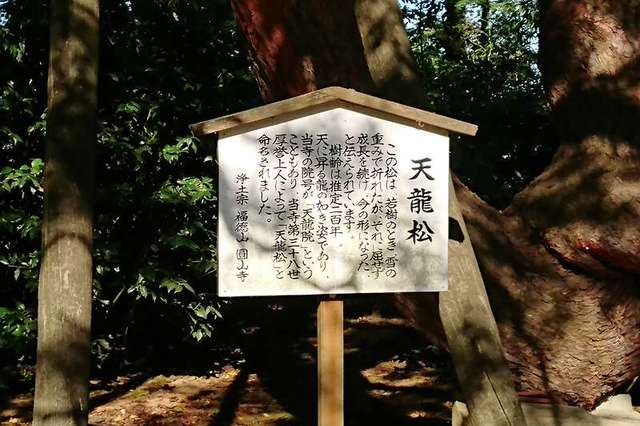 天龍松
この松は、若樹のとき、雪の
重みで折れたが、それに屈せず
成長を続け、今の形になった、
と伝えられています。
樹齢は推定二百年。
天に昇る龍の如き姿であり、
当寺の院号が「天龍院」という
こともあり、当寺第三十八世
厚誉上人によって「天龍松」と
命名されました。
浄土宗 福徳山 圓山寺